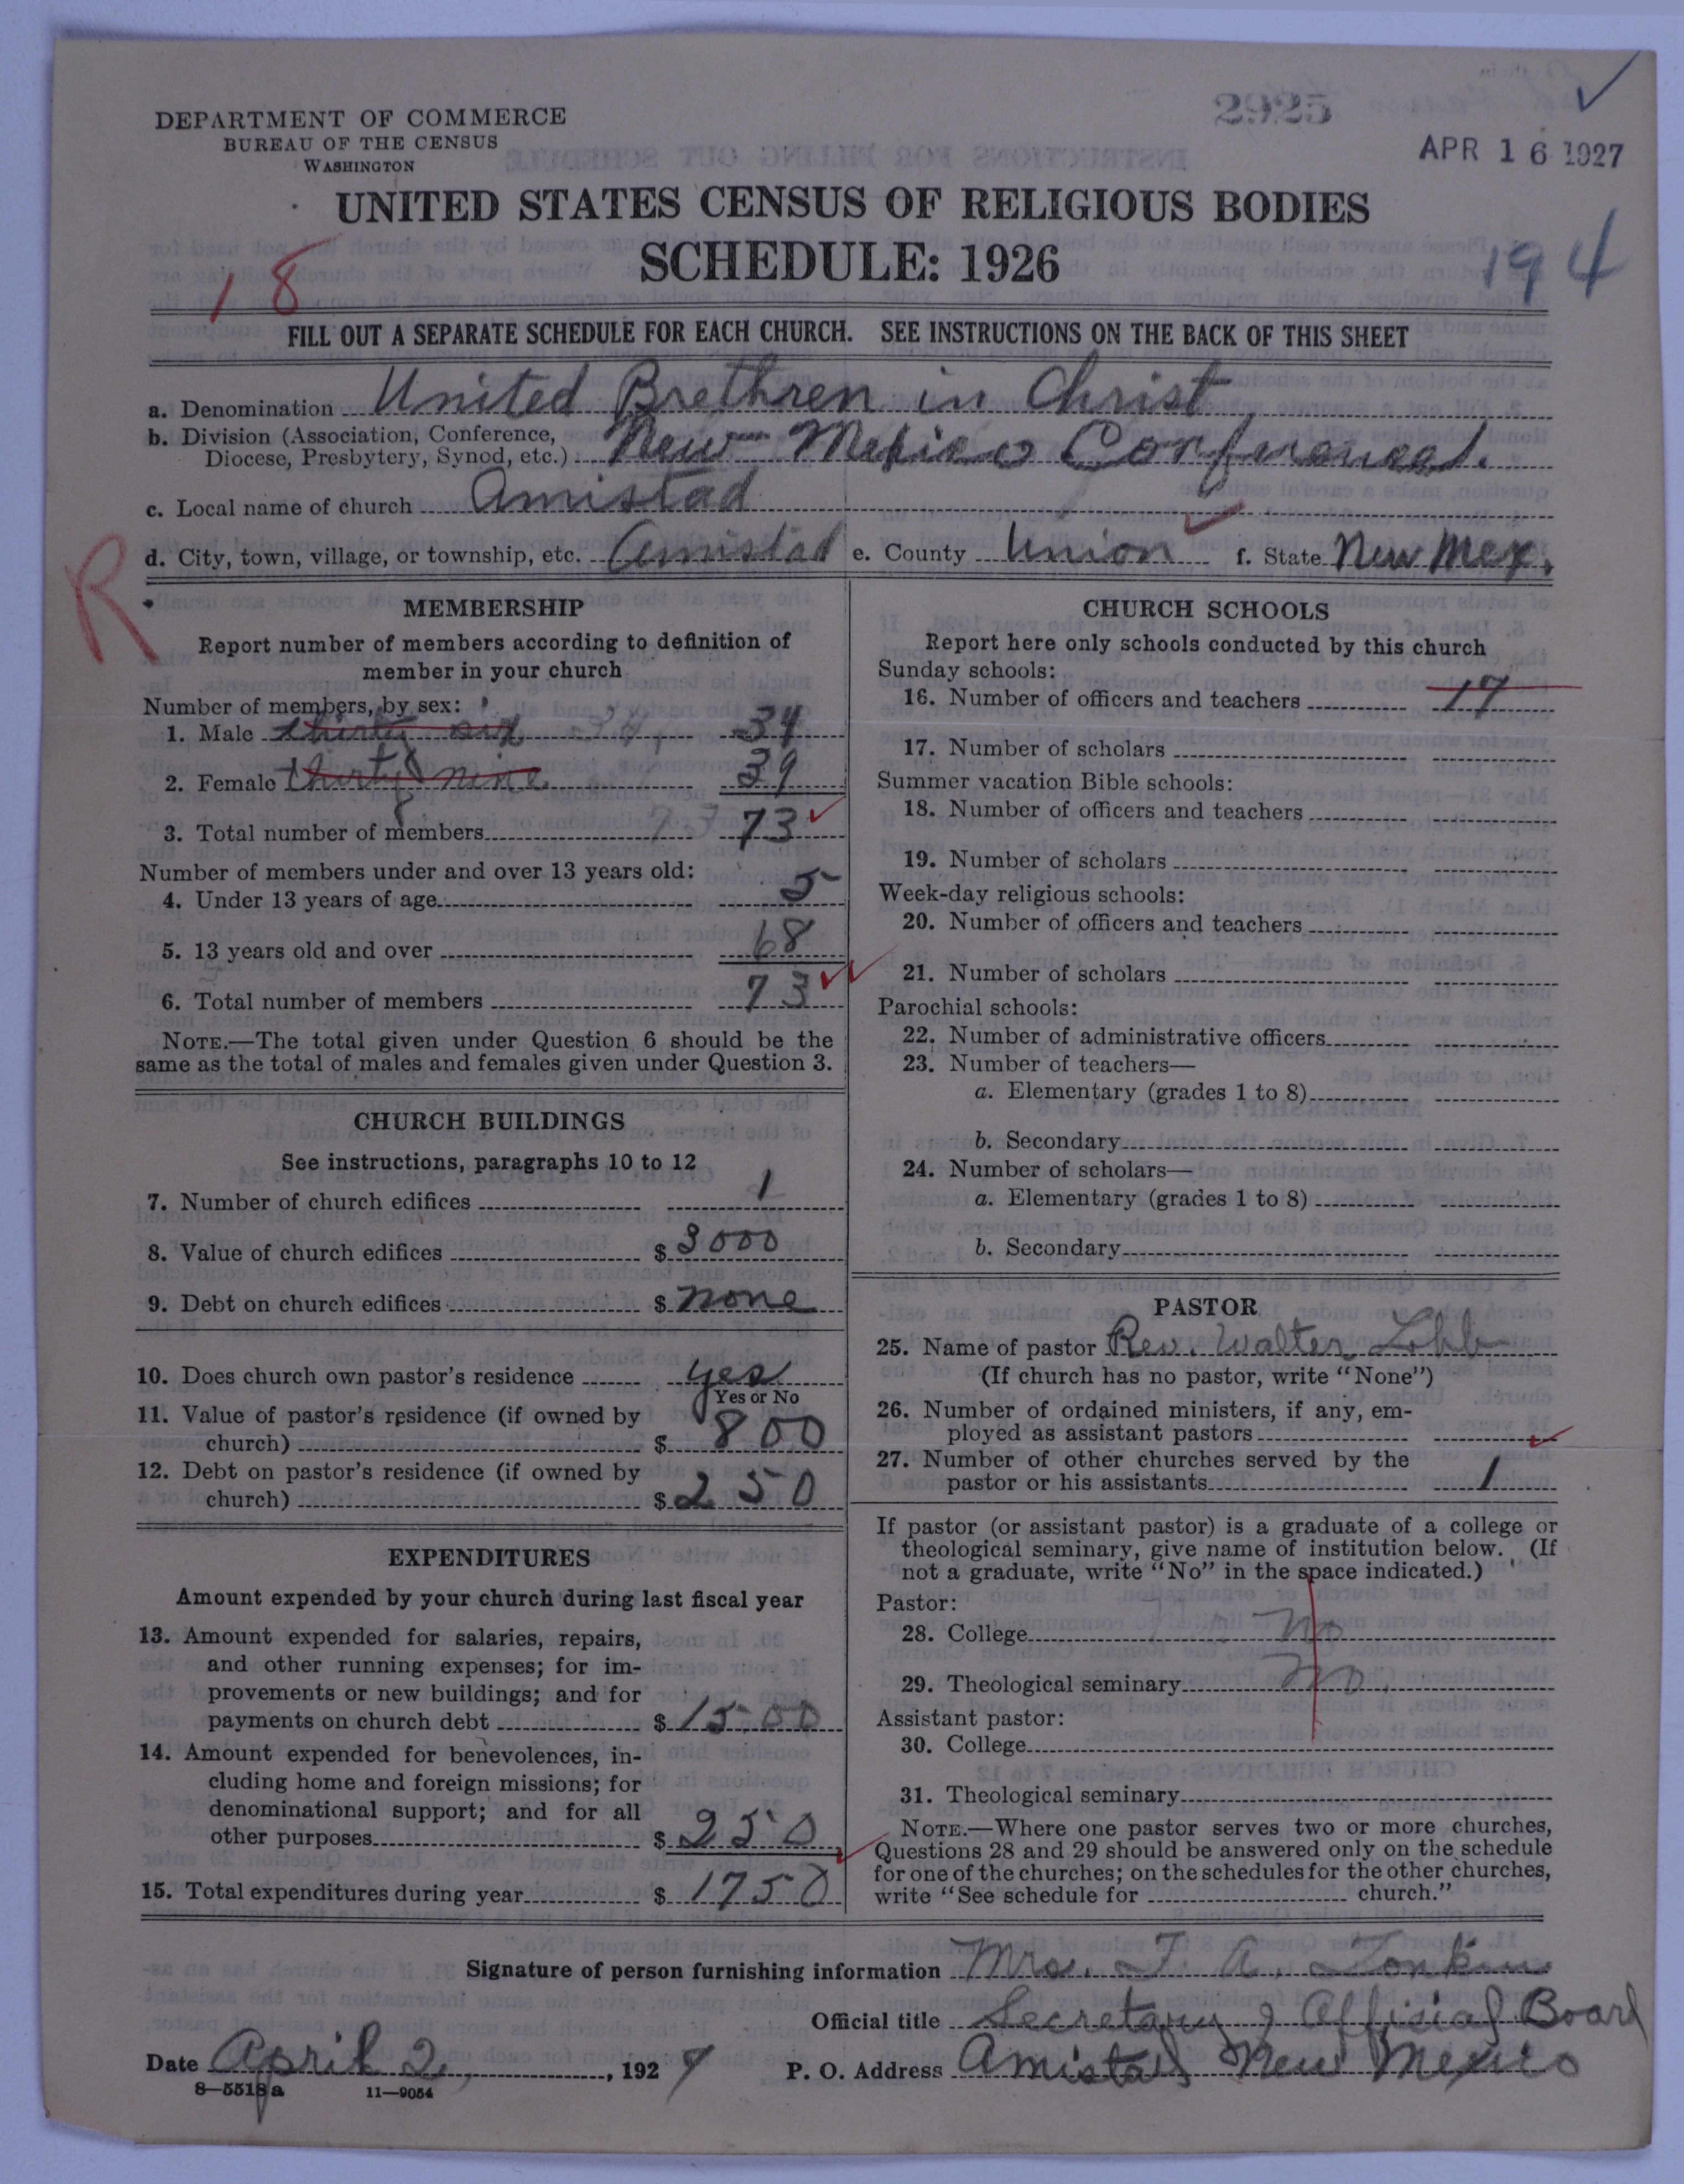 2925
APR 16 1927
DEPARTMENT OF COMMERCE
BUREAU OF THE CENSUS
WASHINGTON
UNITED STATES CENSUS OF RELIGIOUS BODIES
SCHEDULE: 1926
18
194
FILL OUT A SEPARATE SCHEDULE FOR EACH CHURCH. SEE INSTRUCTIONS ON THE BACK OF THIS SHEET
a. Denomination United Brethren in Christ
b. Division (Association, Conference,
Diocese, Presbytery, Synod, etc.) New Mexico Conference.
c. Local name of church Amistad
d. City, town, village, or township, etc. Amistad e. County Union f. State New Mex.
R
MEMBERSHIP
Report number of members according to definition of
member in your church
Number of members, by sex:
1. Male thirty six 34 34
2. Female thirty nine 39
3. Total number of members 73 73
Number of members under and over 13 years old:
4. Under 13 years of age 5
5. 13 years old and over 68
6. Total number of members 73
NOTE.—The total given under Question 6 should be the
same as the total of males and females given under Question 3.
CHURCH BUILDINGS
See instructions, paragraphs 10 to 12
7. Number of church edifices 1
8. Value of church edifices $ 3000
9. Debt on church edifices $ none
10. Does church own pastor's residence yes
Yes or No
11. Value of pastor's residence (if owned by
church) $ 800
12. Debt on pastor's residence (if owned by
church) $ 250
EXPENDITURES
Amount expended by your church during last fiscal year
13. Amount expended for salaries, repairs,
and other running expenses; for im-
provements or new buildings; and for
payments on church debt $ 1500
14. Amount expended for benevolences, in-
cluding home and foreign missions; for
denominational support; and for all
other purposes $ 250
15. Total expenditures during year $ 1750
CHURCH SCHOOLS
Report here only schools conducted by this church
Sunday schools:
16. Number of officers and teachers 17
17. Number of scholars
Summer vacation Bible schools:
18. Number of officers and teachers
19. Number of scholars
Week-day religious schools:
20. Number of officers and teachers
21. Number of scholars
Parochial schools:
22. Number of administrative officers
23. Number of teachers—
a. Elementary (grades 1 to 8)
b. Secondary
24. Number of scholars—
a. Elementary (grades 1 to 8)
b. Secondary
PASTOR
25. Name of pastor Rev. Walter
(If church has no pastor, write "None")
26. Number of ordained ministers, if any, em-
ployed as assistant pastors
27. Number of other churches served by the
pastor or his assistants 1
If pastor (or assistant pastor) is a graduate of a college or
theological seminary, give name of institution below. (If
not a graduate, write "No" in the space indicated.)
Pastor:
28. College No
29. Theological seminary No
Assistant pastor:
30. College
31. Theological seminary
NOTE.—Where one pastor serves two or more churches,
Questions 28 and 29 should be answered only on the schedule
for one of the churches; on the schedules for the other churches,
write "See schedule for church."
Signature of person furnishing information Mrs.
Official title Secretary of Official Board
Date April 2, 1927 P. O. Address Amistad New Mexico
8—5518a 11—9054